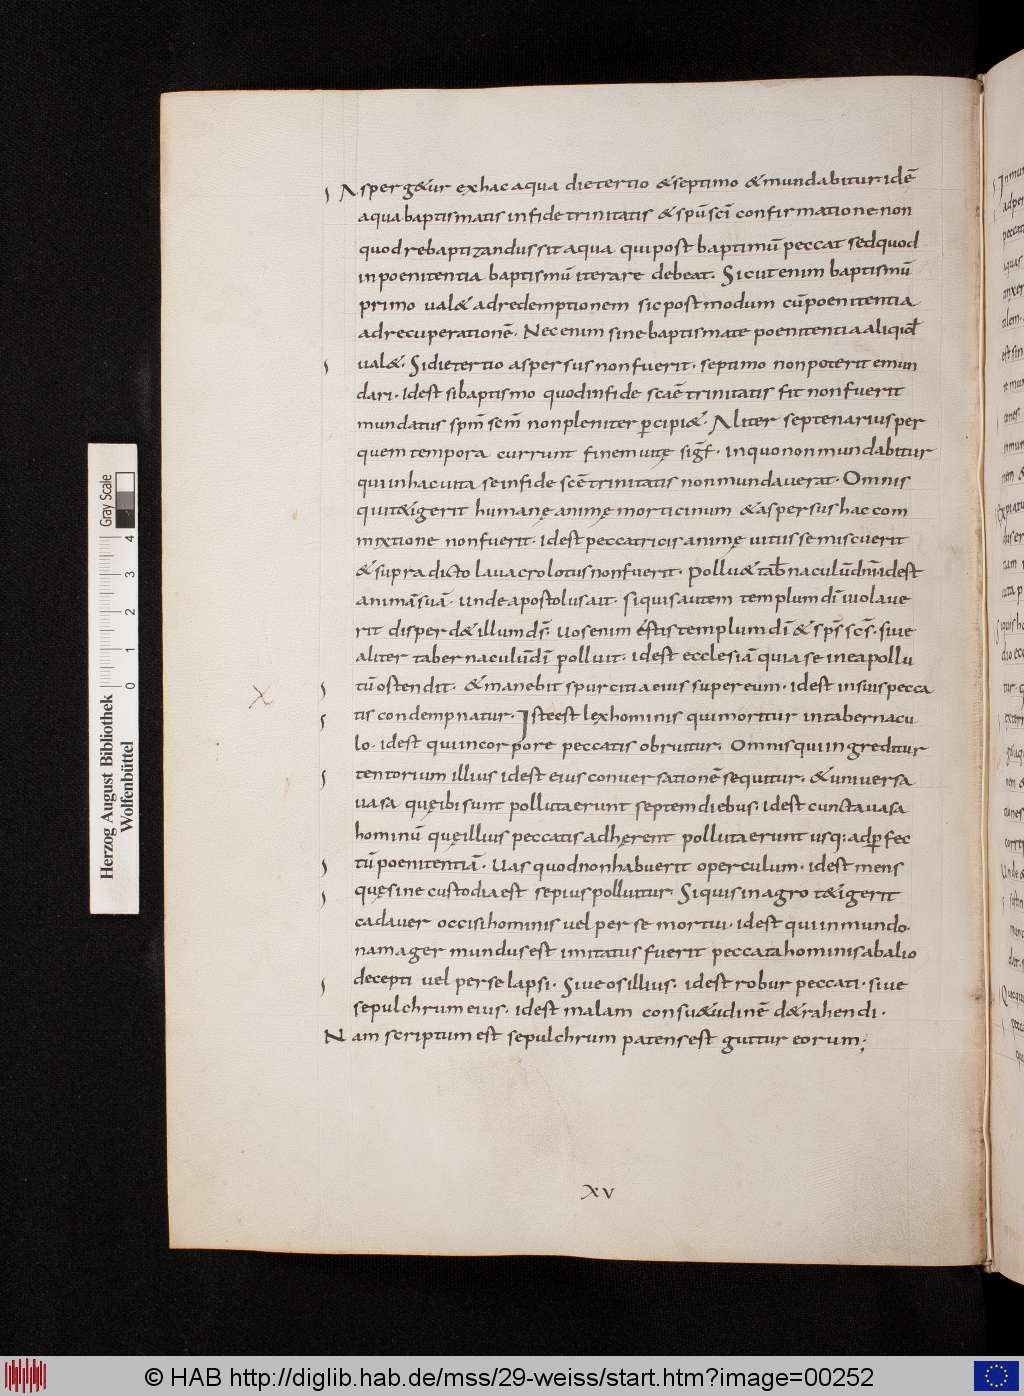 Asperg&ur exhac aqua dietertio &septimo &mundabitur· idē
aqua baptismatis infide trinitatis &spū sc̄i confirmatione non
quod rebaptizandus sit aqua qui post baptimū peccat sed quod
inpoenitentia baptismū iterare debeat. Sicut enim baptismū
primo ual& adredemptionem sic postmodum cū poenitentia
adrecuperationē. Nec enim sine baptismate poenitentia aliquid
ual&. Si dietertio aspersus non fuerit· septimo non poterit emun
dari· idest si baptismo quod infide scaē trinitatis fit non fuerit
mundatus spm̄ scm̄ non pleniter p̄cipi&. Aliter septenarius per
quem tempora currunt finem uitę sigf̄· inquo non mundabitur
qui in hac uita se infide scē trinitatis non mundauerat· Omnis
qui t&igerit humanę animę morticinum &aspersus hac com
mixtione non fuerit· idest peccatricis animę uitiis se miscuerit
&supra dicto lauacro lotus non fuerit· Pollu& tab̄naculū dnī· idest
animā suā· unde apostolus ait· si quis autem templum dī uiolaue
rit disperd& illum d̄s̄· uos enim estis templum dī & sp̄s s̄c̄s· siue
aliter tabernaculū dī polluit· idest ecclesiā quia se in ea pollu
tū ostendit· &manebit spurcitia eius super eum· idest insuis pecca
tis condempnatur· Iste est lex hominis qui moritur in tabernacu
lo· idest qui in corpore peccatis obruitur. Omnis qui ingreditur
tentorium illius idest eius conuersationē sequitur· &uniuersa
uasa quę ibi sunt polluta erunt septem diebus· idest cuncta uasa
hominū quę illius peccatis adhęrent polluta erunt usq; adp̄fec
tū poenitentiā· Uas quod non habuerit operculum· idest mens
quę sine custodia est sepius polluitur· Siquis in agro t&igerit
cadauer occisi hominis uel per se mortui· idest qui in mundo·
nam ager mundus est imitatus fuerit peccata hominis ab alio
decepti uel per se lapsi· Siue os illius· idest robur peccati· siue
sepulchrum eius· idest malam consu&udinē d&rahendi·
Nam scriptum est sepulchrum patens est guttur eorum;
XV
Herzog August Bibliothek
Wolfenbüttel
Gray Scale
0 1 2 3 4
© HAB http://diglib.hab.de/mss/29-weiss/start.htm?image=00252